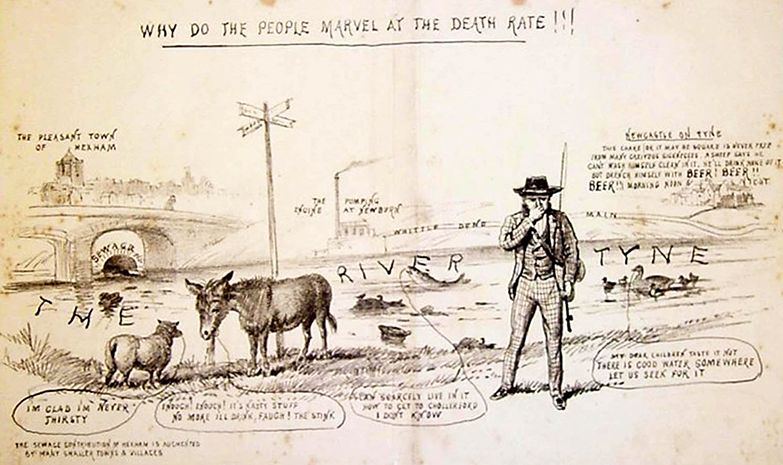 WHY DO THE PEOPLE MARVEL AT THE DEATH RATE!!!
THE PLEASANT TOWN
OF HEXHAM
NEWCASTLE ON TYNE
THIS CHARE OR IT MAY BE SQUARE IS NEVER FREE
FROM MANY GREIVOUS SICKNESSES, A SHEEP SAYS HE
CAN'T WASH HIMSELF CLEAN IN IT, HE'LL DRINK NONE OF IT
BUT DRENCH HIMSELF WITH BEER! BEER!!
BEER!!! MORNING NOON &
THE PUMPING
ENGINE AT NEWBURN
WHITTLE DENE MAIN
SEWAGE
THE RIVER TYNE
IM GLAD IM NEVER
THIRSTY
ENOUGH! ENOUGH! IT'S NASTY STUFF
NO MORE I'LL DRINK, FAUGH! THE STINK
CAN SCARCELY LIVE IN IT
HOW TO GET TO CHOLLERFORD
I DON'T KNOW
MY DEAR CHILDREN TASTE IT NOT
THERE IS GOOD WATER SOMEWHERE
LET US SEEK FOR IT
THE SEWAGE CONTRIBUTION OF HEXHAM IS AUGMENTED
BY MANY SMALLER TOWNS & VILLAGES